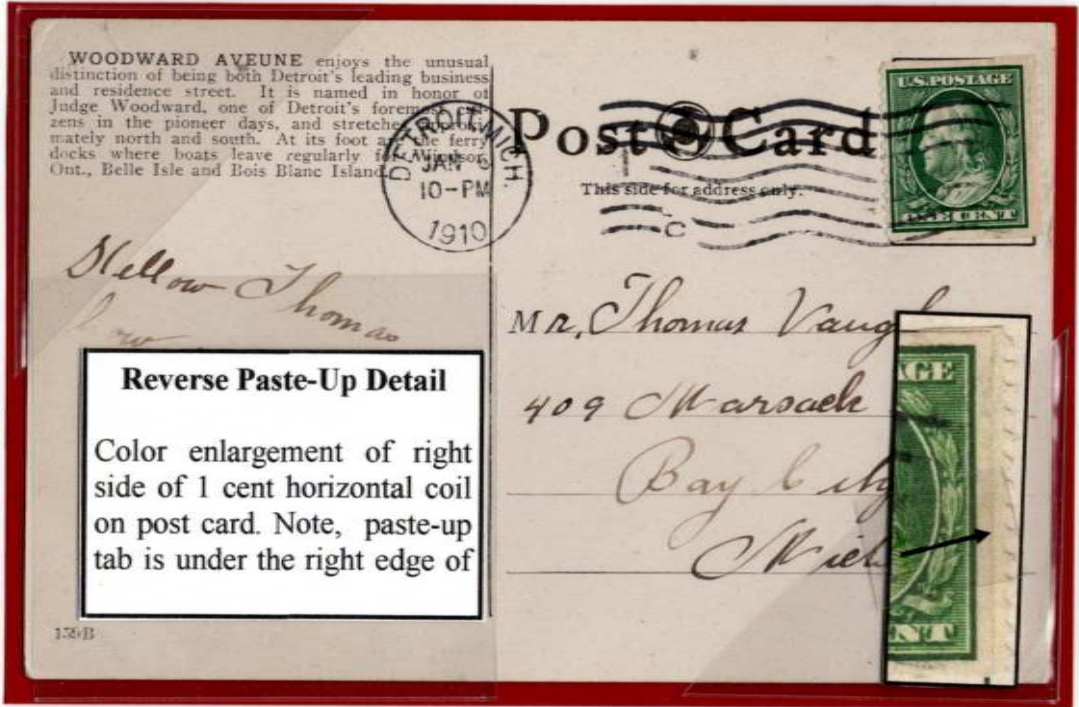 WOODWARD AVEUNE enjoys the unusual
distinction of being both Detroit's leading business
and residence street. It is named in honor of
Judge Woodward, one of Detroit's foremost citi-
zens in the pioneer days, and stretches approxi-
mately north and south. At its foot are the ferry
docks where boats leave regularly for Windsor,
Ont., Belle Isle and Bois Blanc Island.
DETROIT, MICH.
JAN 6
10-PM
1910
Post Card
This side for address only.
C
U.S.POSTAGE
ONE CENT
Hellow Thomas
Mr. Thomas Vaug
409 Marsack
Bay City
Mich
Reverse Paste-Up Detail
Color enlargement of right
side of 1 cent horizontal coil
on post card. Note, paste-up
tab is under the right edge of
AGE
NT
139B